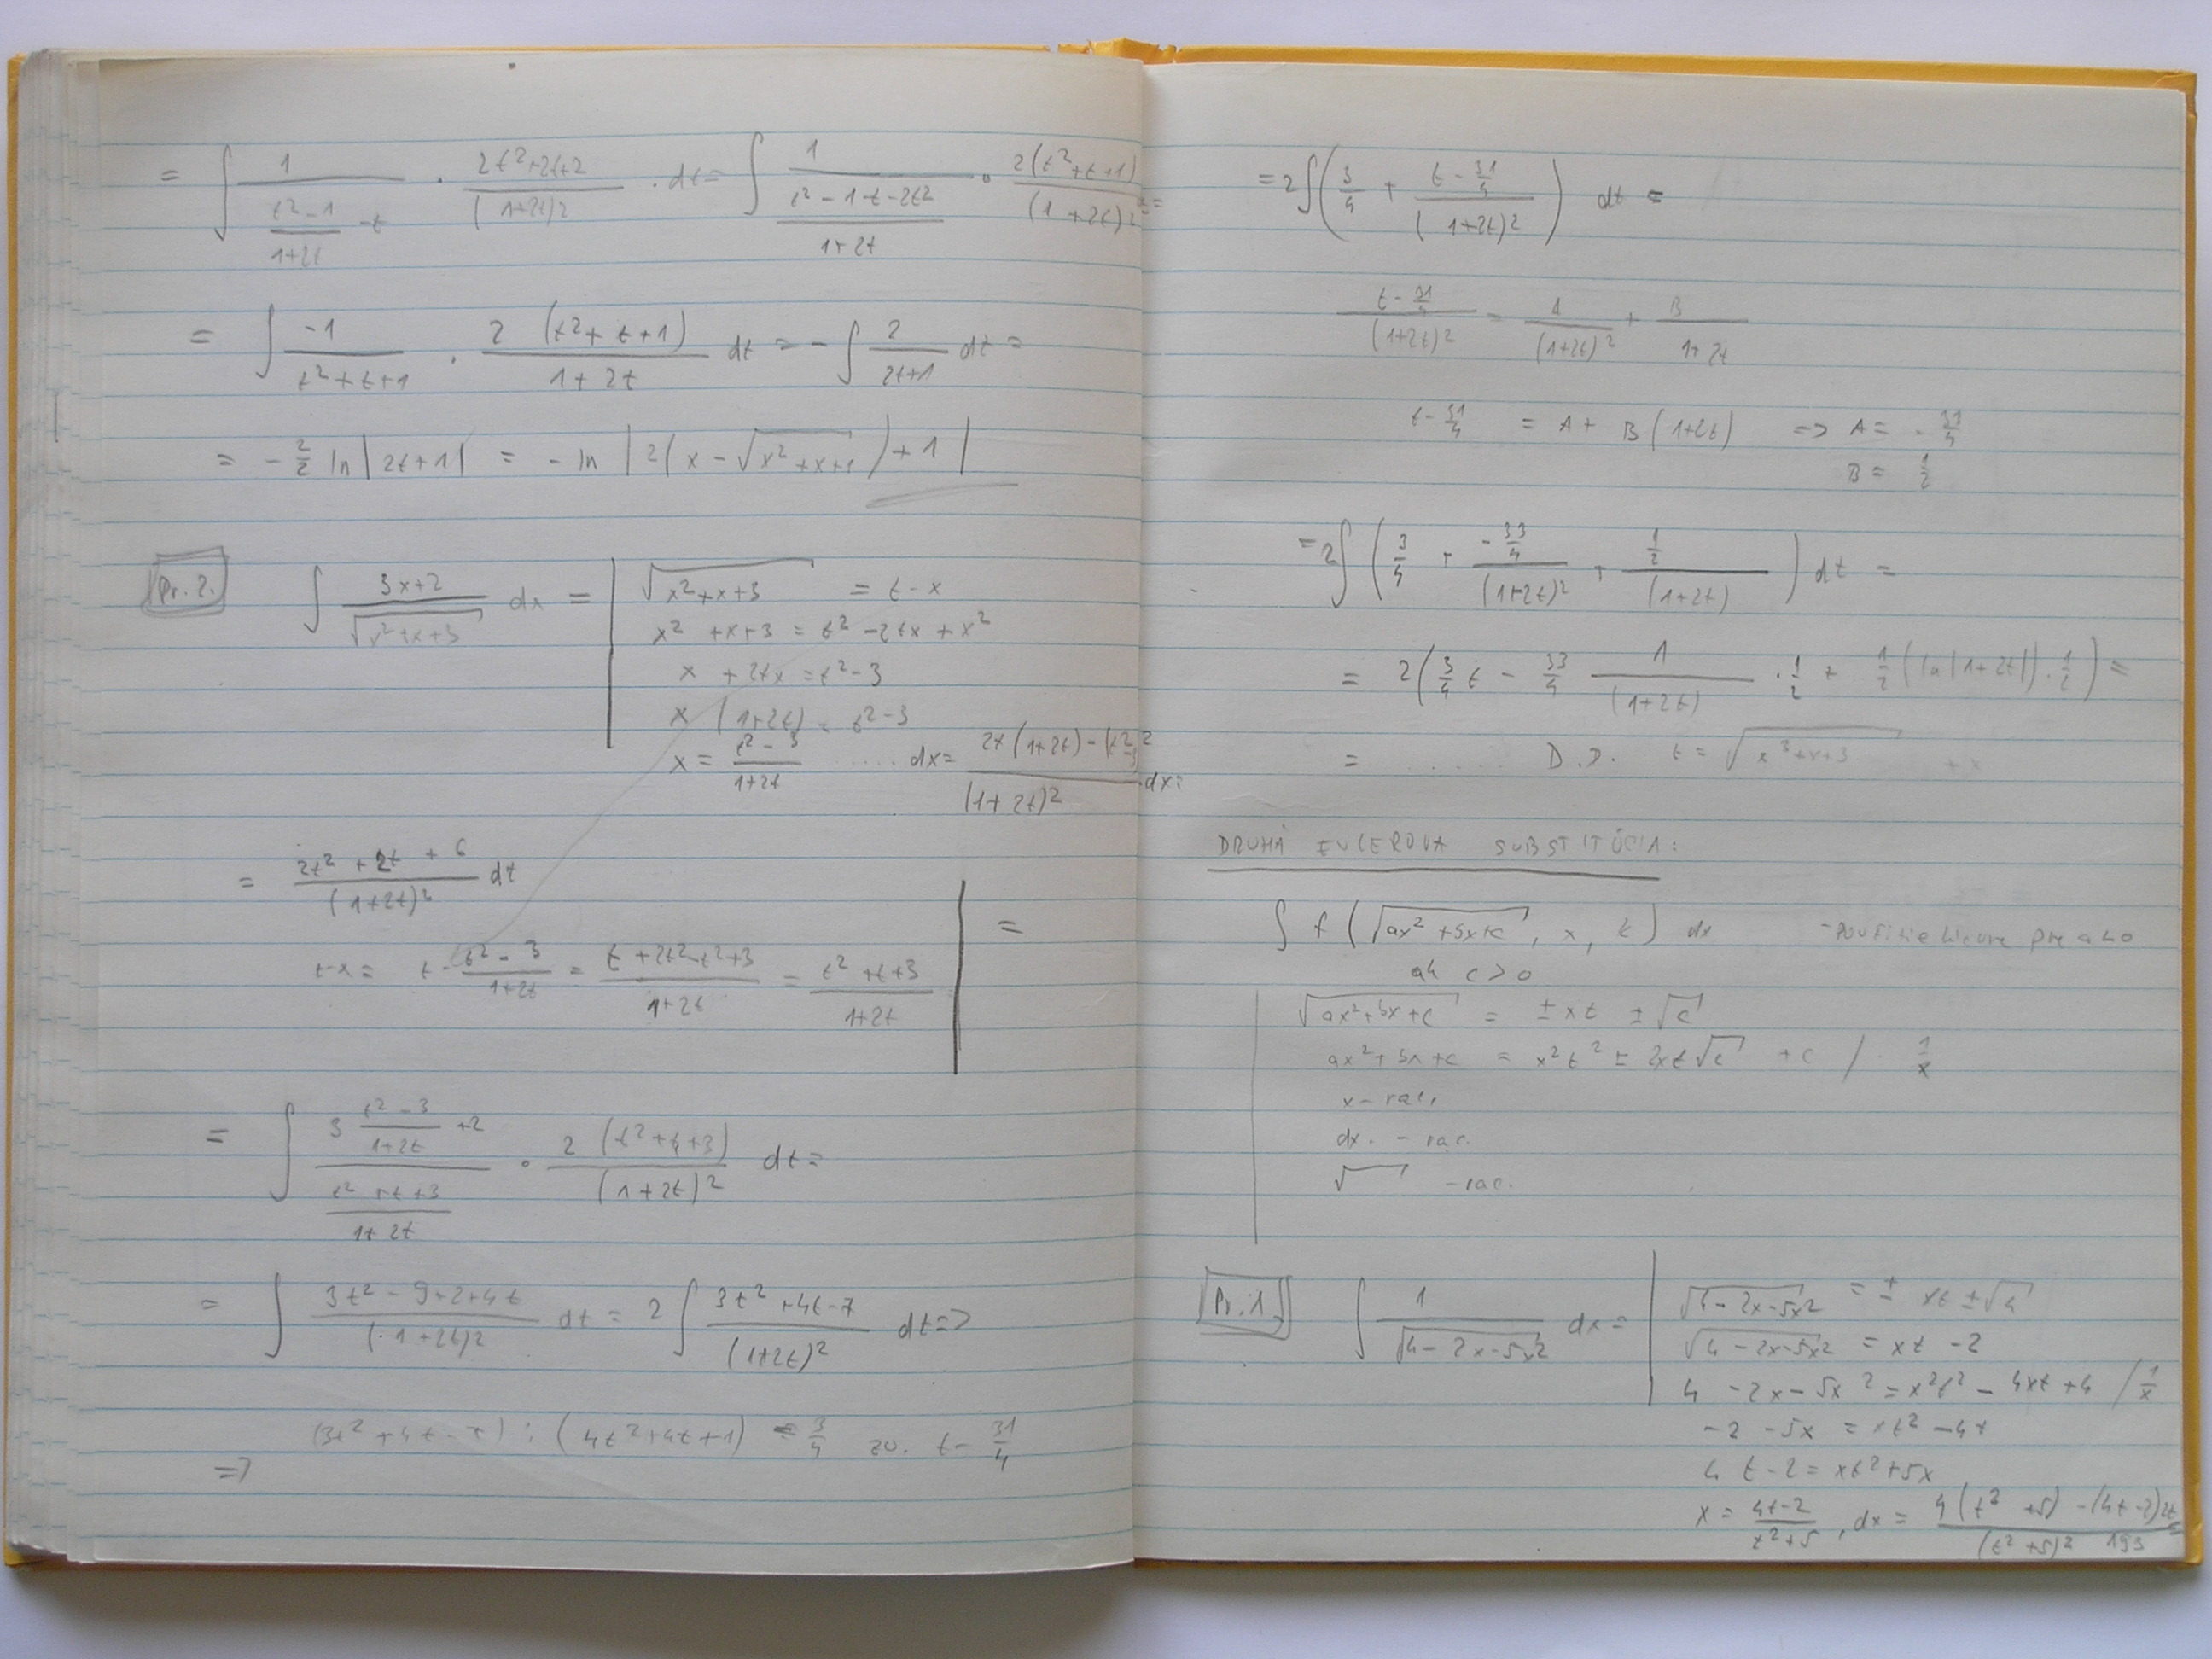 = ∫ 1/((t²-1)/(1+2t) - t) · (2t²+2t+2)/(1+2t)² · dt = ∫ 1/((t²-1-t-2t²)/(1+2t)) · 2(t²+t+1)/(1+2t)² =
= ∫ -1/(t²+t+1) · 2(t²+t+1)/(1+2t) dt = - ∫ 2/(2t+1) dt =
= - 2/2 ln|2t+1| = - ln |2(x-√(x²+x+1))+1|
Pr. 2. ∫ (3x+2)/√(x²+x+3) dx = | √(x²+x+3) = t-x
x²+x+3 = t²-2tx+x²
x+2tx = t²-3
x(1+2t) = t²-3
x = (t²-3)/(1+2t) ..... dx = (2t(1+2t)-(t²-3)2)/(1+2t)² dx =
= (2t²+2t+6)/(1+2t)² dt
t-x = t-(t²-3)/(1+2t) = (t+2t²-t²+3)/(1+2t) = (t²+t+3)/(1+2t) | =
= ∫ (3 (t²-3)/(1+2t) +2)/((t²+t+3)/(1+2t)) · 2(t²+t+3)/(1+2t)² dt =
= ∫ (3t²-9+2+4t)/(1+2t)² dt = 2 ∫ (3t²+4t-7)/(1+2t)² dt =>
=> (3t²+4t-7) : (4t²+4t+1) = 3/4 zv. t - 31/4
= 2∫(3/4 + (t-31/4)/(1+2t)²) dt =
(t-31/4)/(1+2t)² = A/(1+2t)² + B/(1+2t)
t-31/4 = A + B(1+2t) => A = -31/4
B = 1/2
= 2∫(3/4 + (-33/4)/(1+2t)² + (1/2)/(1+2t)) dt =
= 2(3/4 t - 33/4 1/(1+2t) · 1/2 + 1/2(ln|1+2t|)·1/2) =
= ..... D.D. t = √(x²+x+3) +x
DRUHÁ EULEROVA SUBSTITÚCIA:
∫ f(√(ax²+bx+c), x, t) dx - použitie hlavne pre a<0
ak c>0
√(ax²+bx+c) = ±xt ±√c
ax²+bx+c = x²t² ± 2xt√c + c / · 1/x
x - rac.
dx. - rac.
√ - rac.
Pr. 1. ∫ 1/√(4-2x-5x²) dx = | √(4-2x-5x²) = ± xt ±√4
√(4-2x-5x²) = xt - 2
4-2x-5x² = x²t²-4xt+4 / 1/x
-2-5x = xt²-4t
4t-2 = xt²+5x
x = (4t-2)/(t²+5), dx = (4(t²+5)-(4t-2)2t)/(t²+5)²
193